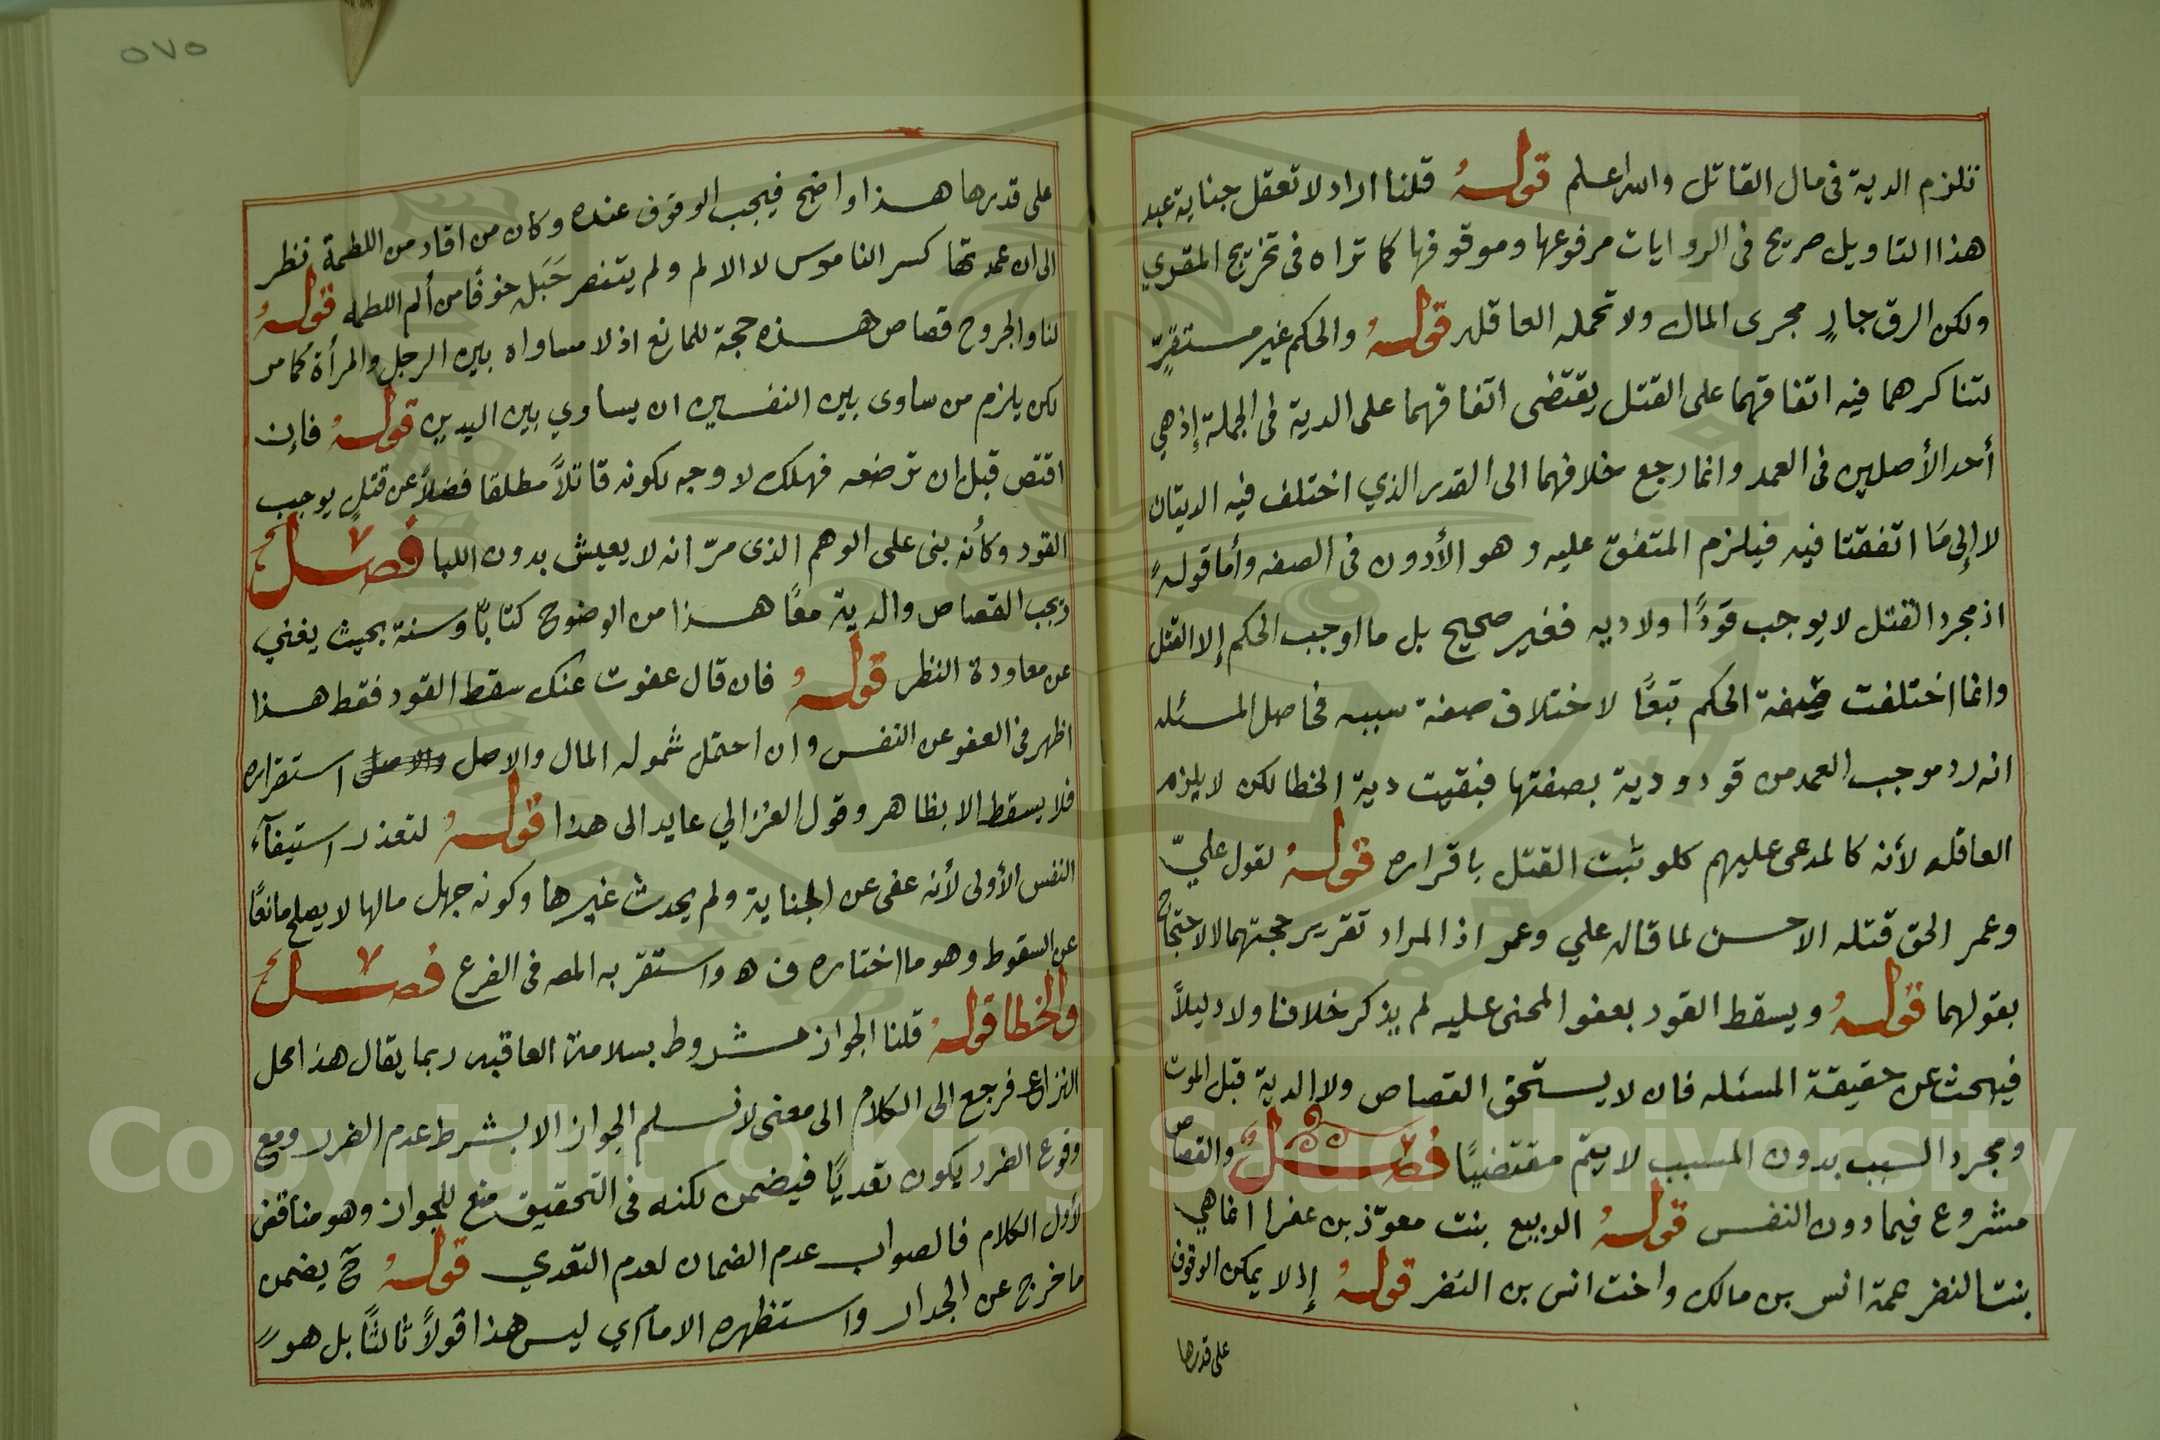 تلزم الدية فى مال القاتل والله اعلم قوله قلنا اراد لا تعقل جناية عبد
هذا التاويل صريح فى الروايات مرفوعها وموقوفها كما تراه فى تخريج المقري
ولكن الرق جارٍ مجرى المال ولا تحمله العاقله قوله والحكم غير مستقرٍّ
لتناكرهما فيه اتفاقهما على القتل يقتضى اتفاقهما على الدية فى الجملة إذ هي
أحد الأصلين فى العمد وانما رجع خلافهما الى القدر الذي اختلف فيه الديتان
لا إلى مَا اتفقتا فيه فيلزم المتفق عليه وهو الأدون فى الصفه وأما قوله
اذ مجرد القتل لا يوجب قوَدًا ولا ديه فغير صحيح بل ما اوجب الحكم إلا القتل
وانما اختلفت صفة الحكم تبعًا لاختلاف صفة سببه فحاصل المسئله
انه رد موجب العمد من قود ودية بصفتها فبقيت دية الخطا لكن لا يلزم
العاقله لأنه كالمدعى عليهم كلو ثبت القتل باقراره قوله لقول عليّ
وعمر الحق قتله الاحسن لما قال علي وعمر اذ المراد تقرير حجتهما لا الاحتجاج
بقولهما قوله ويسقط القود بعفو المجنى عليه لم يذكر خلافا ولا دليلاً
فيبحث عن حقيقة المسئله فان لا يستحق القصاص ولا الدية قبل الموت
ومجرد السبب بدون المسبب لا يتم مقتضيًا فصل والقصاص
مشروع فيما دون النفس قوله الربيع بنت معوّذ بن عفرا انما هي
بنت النضر عمة انس بن مالك واخت انس بن النضر قوله إذ لا يمكن الوقوف
على قدرها
٥٧٥
على قدرها هذا واضح فيجب الوقوف عنده وكان من اقاد من اللطمة نظر
الى ان عمدتها كسر الناموس لا الالم ولم يتنصر جَبَل خوفًا من ألم اللطمه قوله
لنا والجروح قصاص هذه حجة للمانع اذ لا مساواه بين الرجل والمرأة كما مر
لكن يلزم من ساوى بين النفسين ان يساوي بين اليدين قوله فإن
اقتص قبل ان ترضعه فهلك لا وجه لكونه قاتلاً مطلقا فضلاً عن قتلٍ يوجب
القود وكأنه بنى على الوهم الذى مرّ انه لا يعيش بدون اللبا فصل
ويجب القصاص والدية معًا هذا من الوضوح كتابًا وسنة بحيث يغني
عن معاودة النظر قوله فان قال عفوت عنك سقط القود فقط هذا
اظهر فى العفو عن النفس وان احتمل شموله المال والاصل استقراره
فلا يسقط الا بظاهر وقول الغزالي عايد الى هذا قوله لتعذر استيفآء
النفس الأولى لأنه عفى عن الجناية ولم يحدث غيرها وكونه جهل مالها لا يصلح مانعًا
عن السقوط وهو ما اختاره ف ه واستقر به المص فى الفرع فصل
والخطا قوله قلنا الجواز مشروط بسلامة العاقبه ربما يقال هذا محل
النزاع فرجع الى الكلام الى معنى لا نسلم الجواز الا بشرط عدم الضرر ومع
وقوع الضرر يكون تعديًا فيضمن لكنه فى التحقيق منع للجواز وهو مناقض
لأول الكلام فالصواب عدم الضمان لعدم التعدي قوله ح يضمن
ما خرج عن الجدار واستظهره الاماما ي ليس هذا قولاً ثالثًا بل هو
Copyright © King Saud University